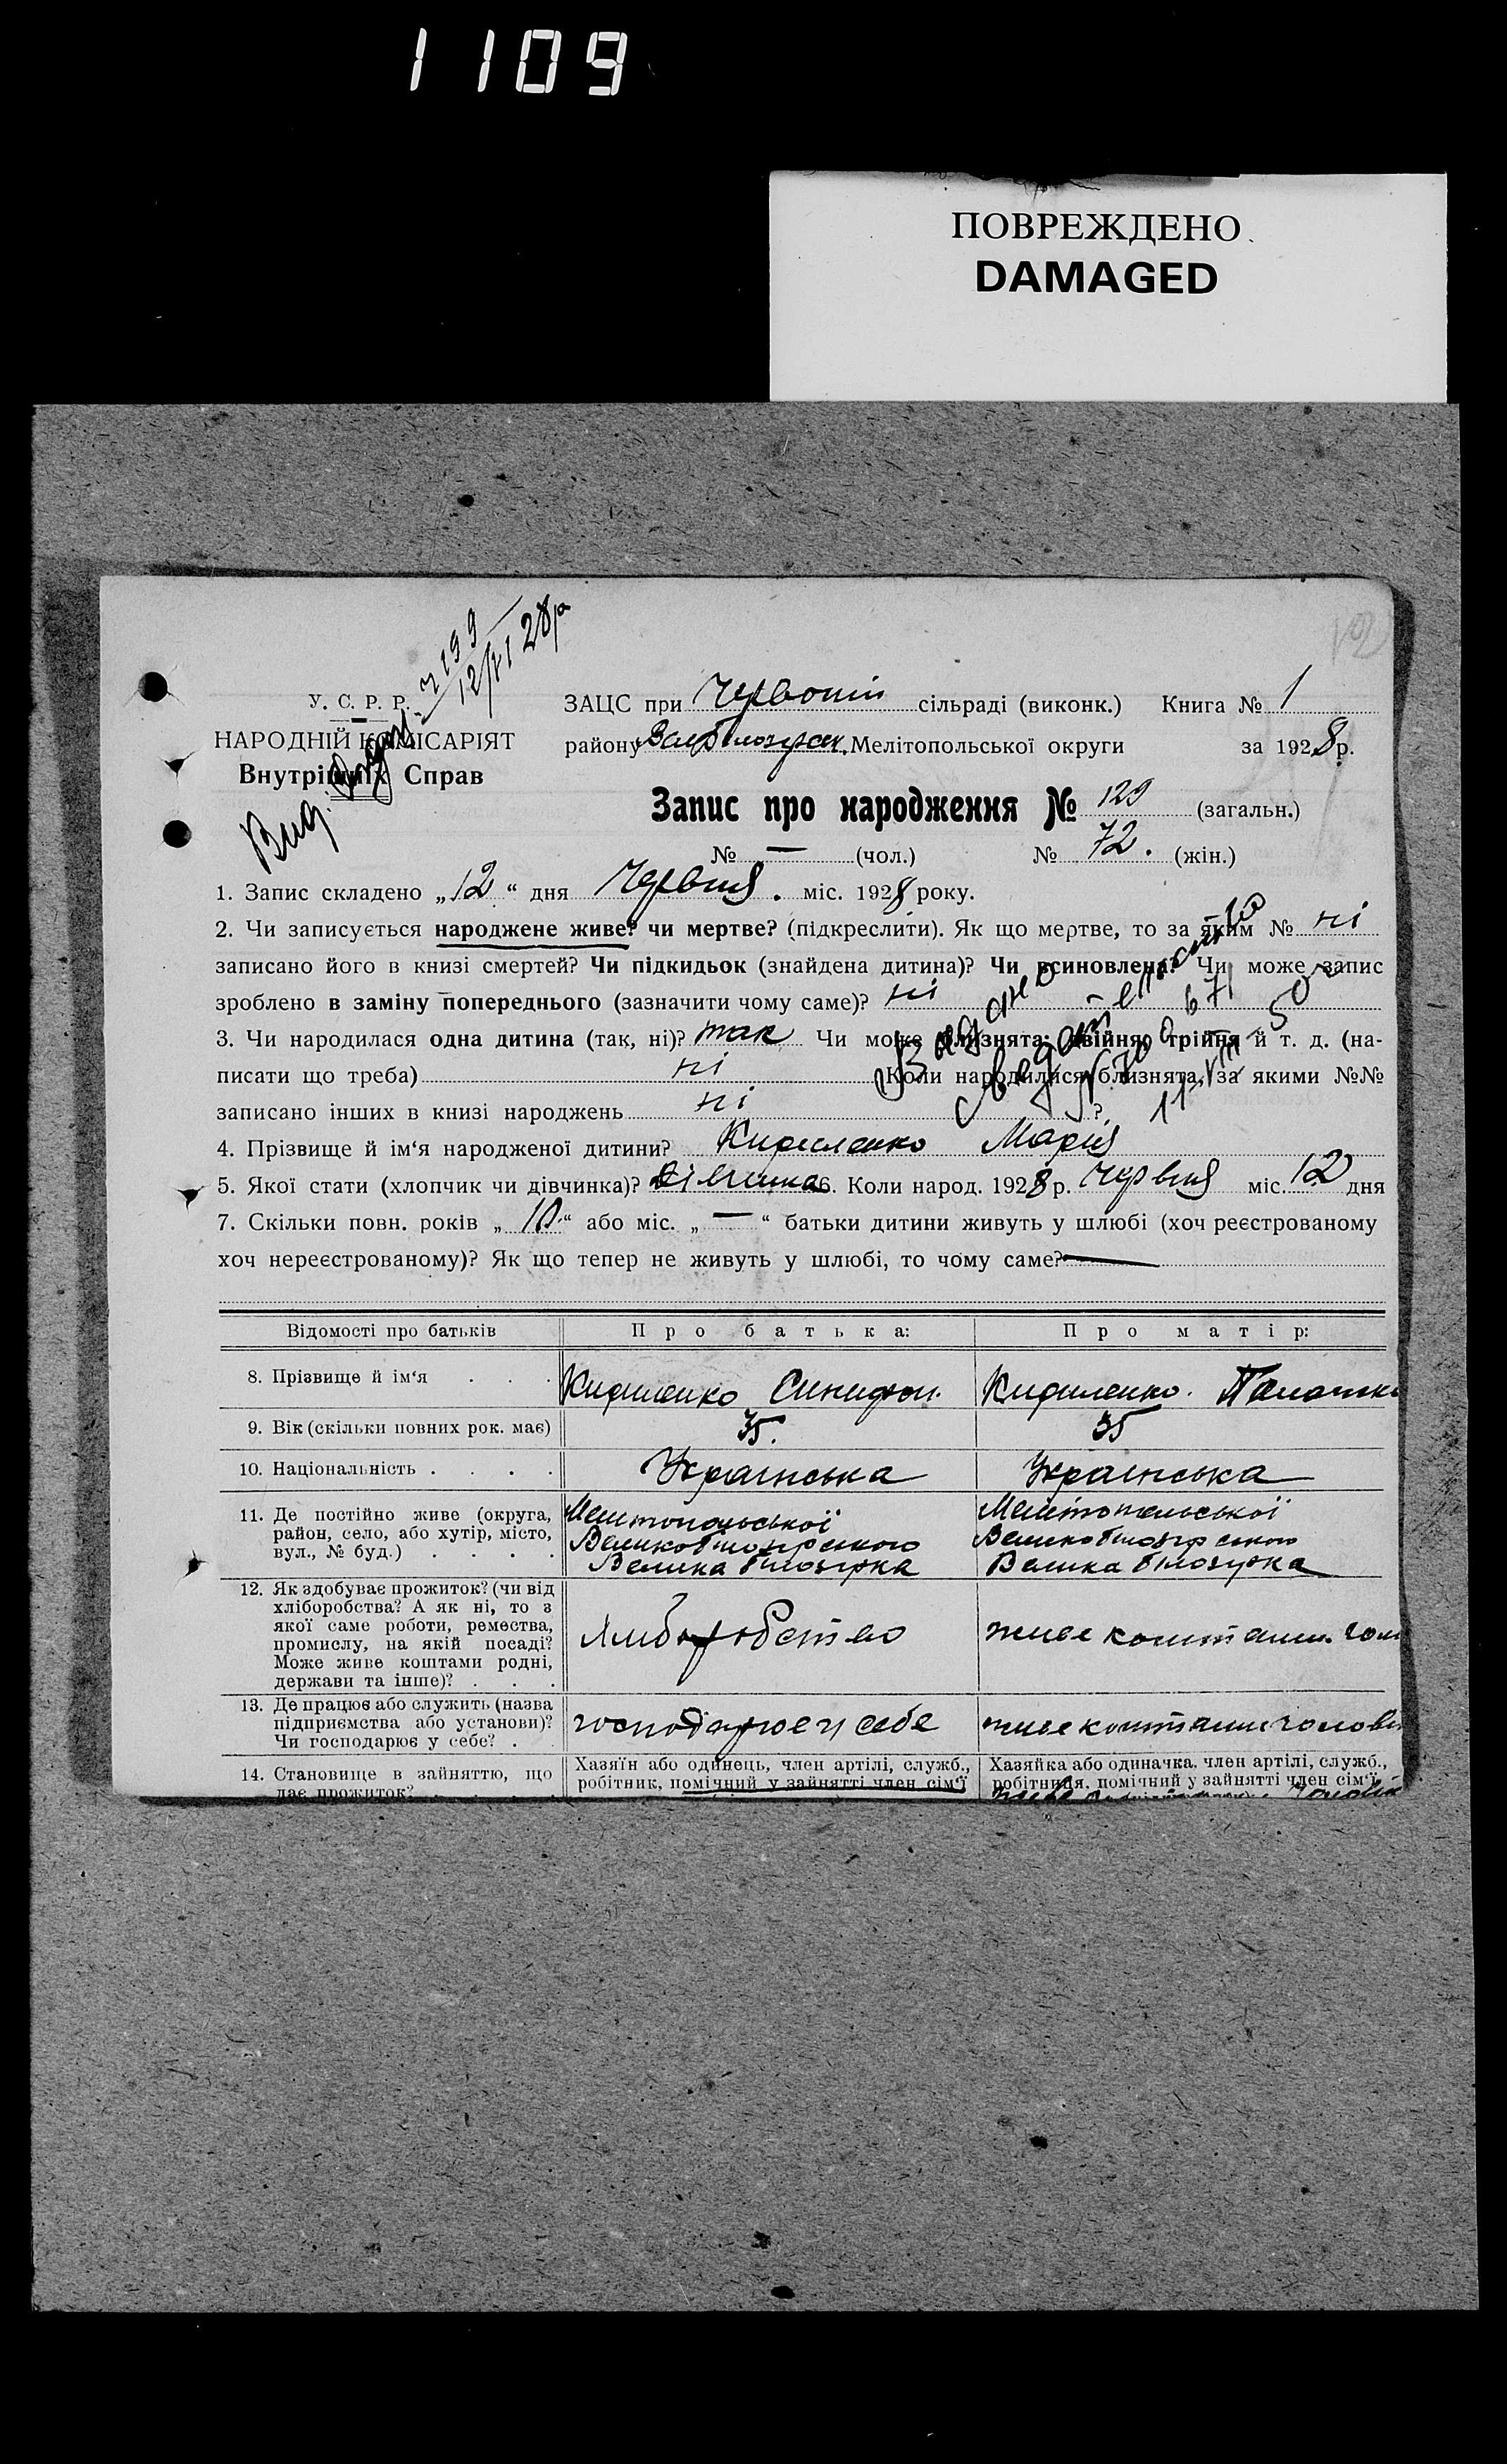 1109
ПОВРЕЖДЕНО
DAMAGED
У. С. Р. Р.
НАРОДНІЙ КОМІСАРІЯТ
Внутрішніх Справ
Вид.
3199
12/VI 28р
ЗАЦС при Червоній сільраді (виконк.) Книга № 1
району Вел білозірськ. Мелітопольської округи за 1928 р.
Запис про народження № 129 (загальн.)
№ — (чол.) № 72. (жін.)
1. Запис складено „12“ дня Червня. міс. 1928 року.
2. Чи записується народжене живе? чи мертве? (підкреслити). Як що мертве, то за яким № ні
записано його в книзі смертей? Чи підкидьок (знайдена дитина)? Чи всиновлена? Чи може запис
зроблено в заміну попереднього (зазначити чому саме)? ні
3. Чи народилася одна дитина (так, ні)? так Чи може близнята: двійня, трійня й т. д. (на-
писати що треба) ні Коли народилися близнята, за якими №№
записано інших в книзі народжень ні ?
4. Прізвище й ім‘я народженої дитини? Кириленко Марія
5. Якої стати (хлопчик чи дівчинка)? дівчинка 6. Коли народ. 1928 р. Червня міс. 12 дня
7. Скільки повн. років „10“ або міс. „—“ батьки дитини живуть у шлюбі (хоч реєстрованому
хоч нереєстрованому)? Як що тепер не живуть у шлюбі, то чому саме? —
Відомості про батьків Про батька: Про матір:
8. Прізвище й ім‘я Кириленко Кириленко.
9. Вік (скільки повних рок. має) 35. 35
10. Національність Українська Українська
11. Де постійно живе (округа, район, село, або хутір, місто, вул., № буд.)
Мелітопольської
Великобілозірського
Велика білозірка
Мелітопольської
Великобілозірського
Велика білозірка
12. Як здобуває прожиток? (чи від
хліборобства? А як ні, то з
якої саме роботи, ремества,
промислу, на якій посаді?
Може живе коштами родні,
держави та інше)?
Хліборобство
живе коштами
13. Де працює або служить (назва
підприємства або установи)?
Чи господарює у себе?
господарює у себе
живе коштами
14. Становище в зайняттю, що
дає прожиток?
Хазяїн або одинець, член артілі, служб.,
робітник, помічний у зайнятті член сім‘ї
Хазяйка або одиначка, член артілі, служб.,
робітниця, помічний у зайнятті член сім‘ї
Выдано
свидетельство